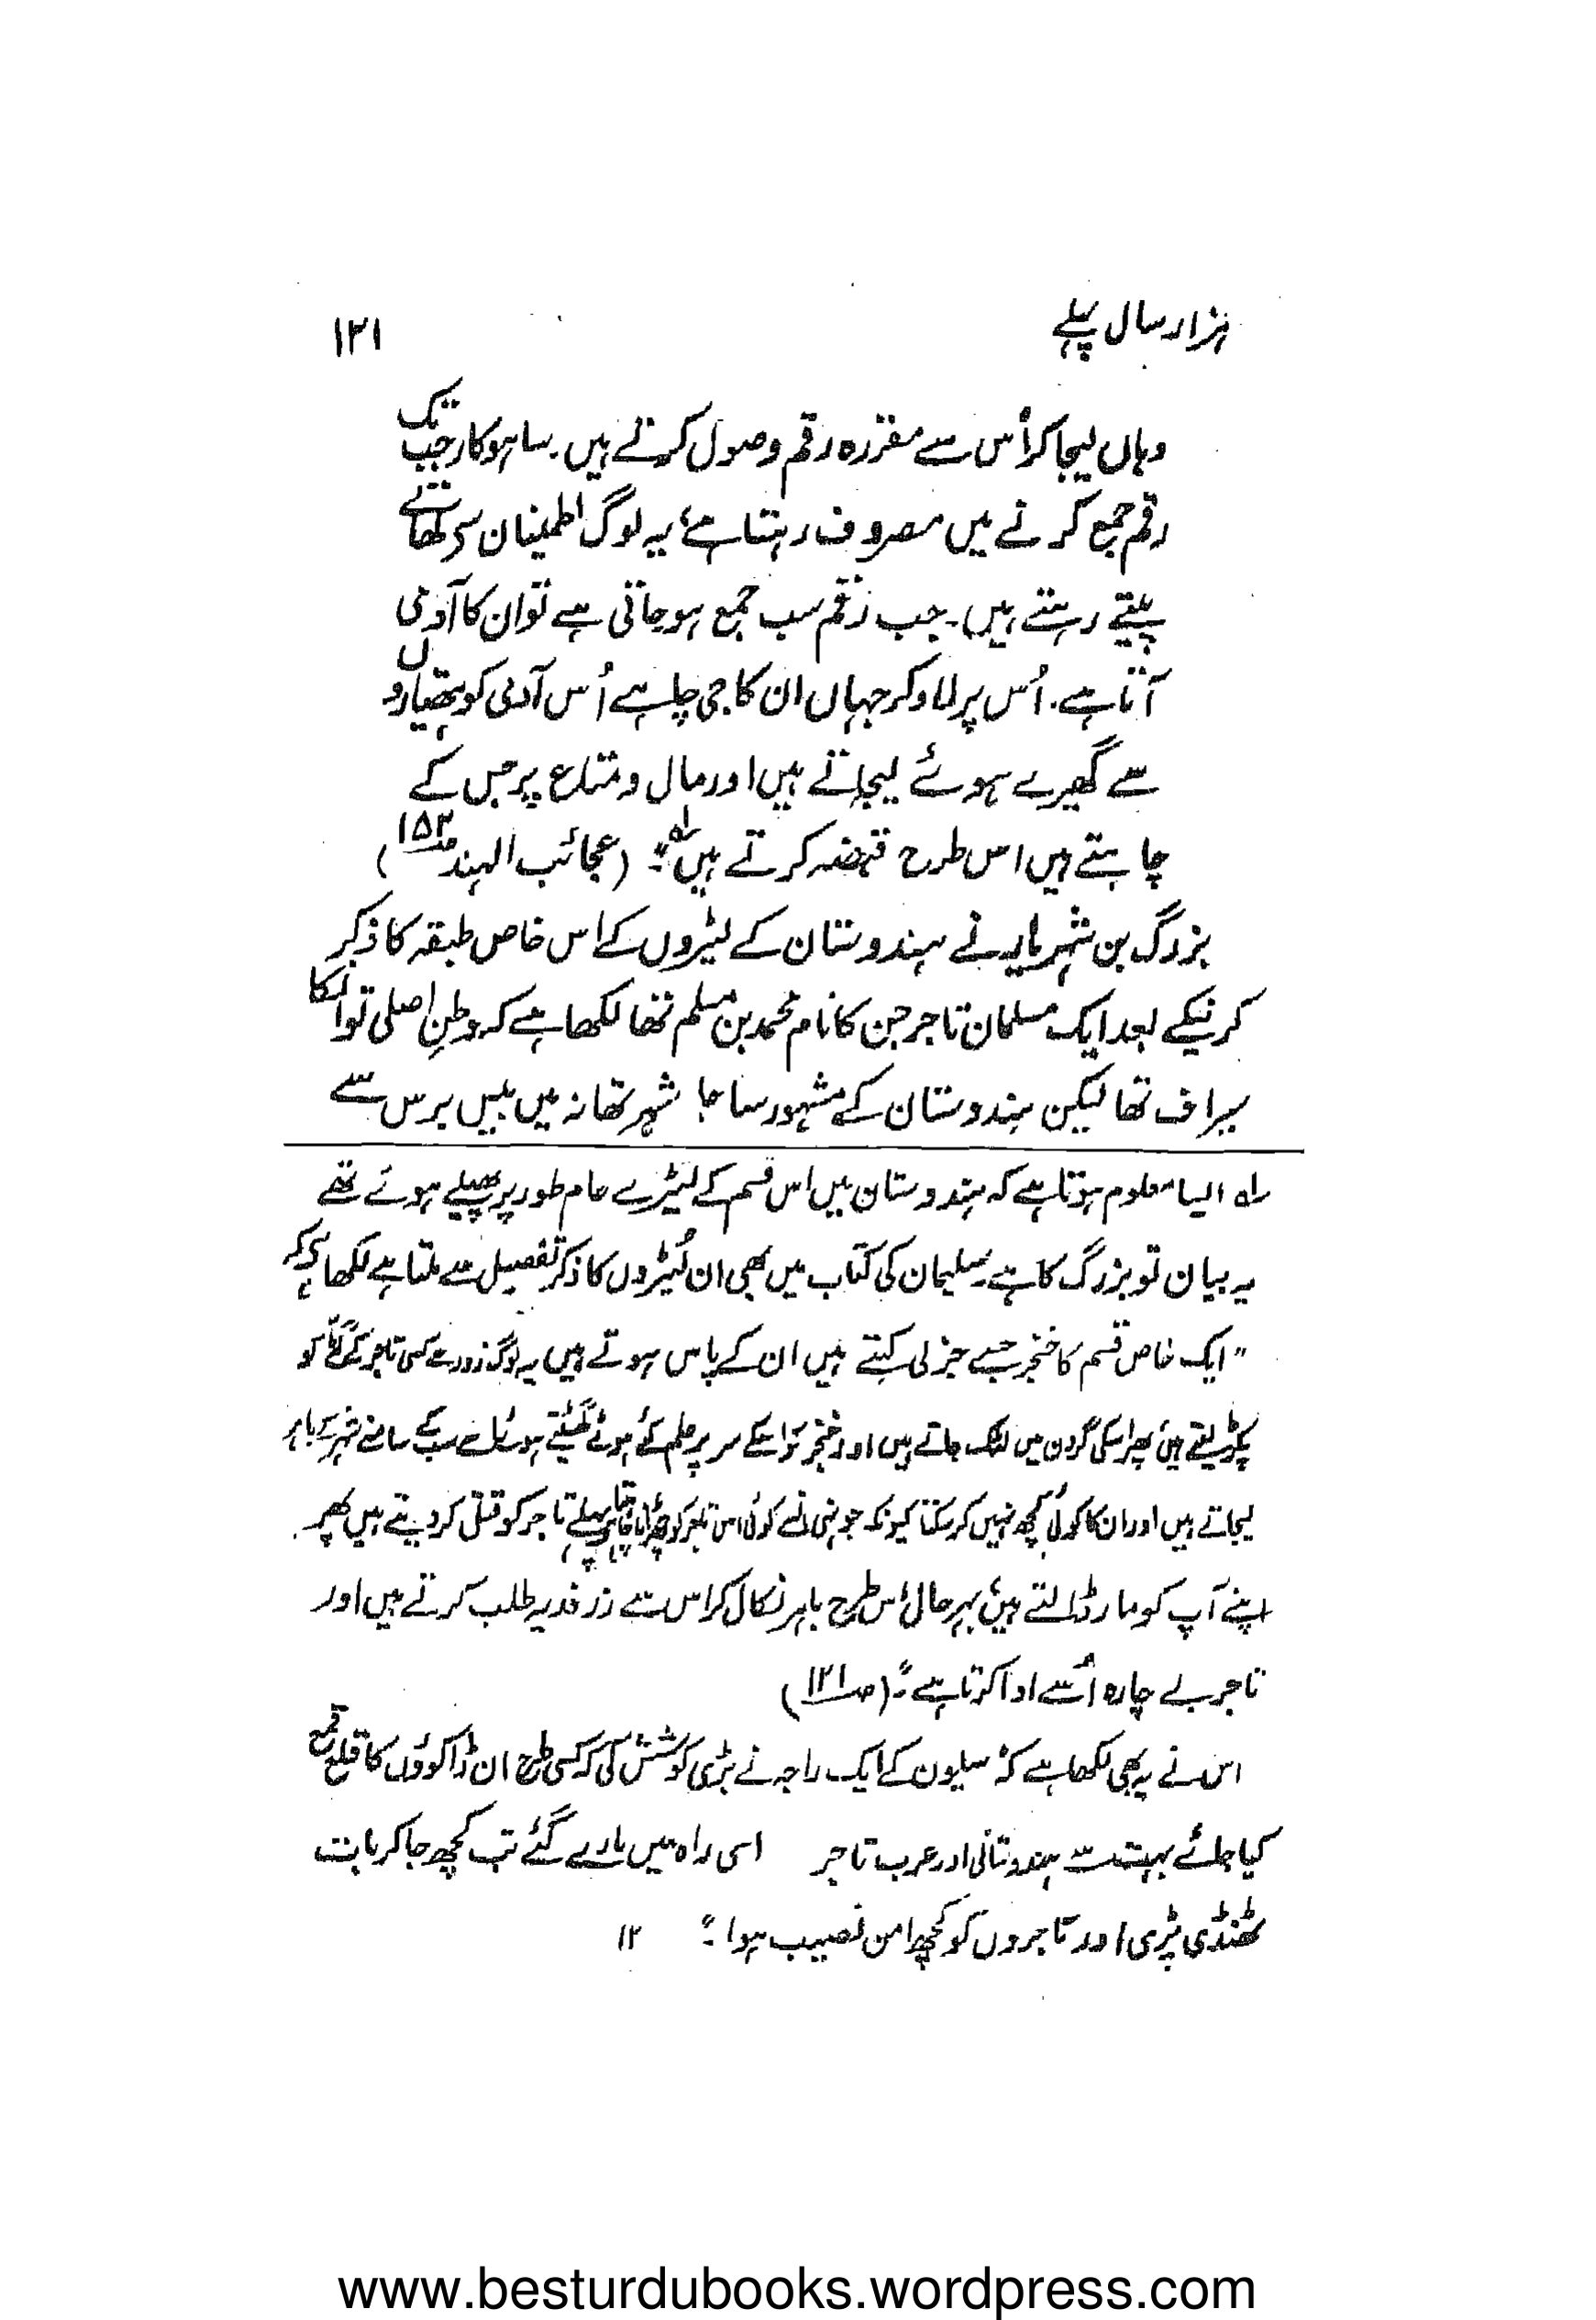 ہزار سال پہلے ۱۲۱
وہاں لیجا کر اُس سے مقررہ رقم وصول کرتے ہیں۔ ساہوکار جب تک
رقم جمع کرنے میں مصروف رہتا ہے، یہ لوگ اطمینان سے کھاتے
پیتے رہتے ہیں۔ جب رقم سب جمع ہو جاتی ہے تو ان کا آدمی
آتا ہے۔ اُس پر لاد کر جہاں ان کا جی چاہے اُس آدمی کو ہتھیاروں
سے گھیرے ہوئے لیجاتے ہیں اور مال و متاع پر جس کے
چاہتے ہیں اس طرح قبضہ کرتے ہیں لہ" (عجائب الہند ص۱۵۳)
بزرگ بن شہریار نے ہندوستان کے لٹیروں کے اس خاص طبقہ کا ذکر
کرنیکے بعد ایک مسلمان تاجر جن کا نام محمد بن مسلم تھا لکھا ہے کہ وطنِ اصلی تو انکا
سیراف تھا لیکن ہندوستان کے مشہور ساحلی شہر تھانہ میں بیس برس سے
لہ ایسا معلوم ہوتا ہے کہ ہندوستان میں اس قسم کے لٹیرے عام طور پر پھیلے ہوئے تھے
یہ بیان تو بزرگ کا ہے۔ سلیمان کی کتاب میں بھی ان لُٹیروں کا ذکر تفصیل سے ملتا ہے لکھا ہے کہ
"ایک خاص قسم کا خنجر جسے جزلی کہتے ہیں ان کے پاس ہوتے ہیں یہ لوگ زور سے کسی تاجر کے کو
پکڑ لیتے ہیں، پھر اسکی گردن میں لٹک جاتے ہیں اور خنجر کو اسکے سر پر علم کئے ہوئے گھسیٹتے ہوئے اسے سب کے سامنے شہر کے باہر
لیجاتے ہیں اور ان کا کوئی کچھ نہیں کر سکتا کیونکہ جونہی کوئی اس تاجر کو چھڑانا چاہتا ہے پہلے تاجر کو قتل کر دیتے ہیں پھر
اپنے آپ کو مار ڈالتے ہیں، بہر حال اس طرح باہر نکال کر اس سے زر فدیہ طلب کرتے ہیں اور
تاجر بے چارہ اُسے ادا کرتا ہے"۔ (ص۱۲۱)
اس نے یہ بھی لکھا ہے کہ "سیلون کے ایک راجہ نے بڑی کوشش کی کہ کسی طرح ان ڈاکوؤں کا قلع قمع
کیا جائے بہت سے ہندوستانی اور عرب تاجر اسی راہ میں مارے گئے تب کچھ جا کر بات
ٹھنڈی پڑی اور تاجروں کو کچھ امن نصیب ہوا"۔ ۱۲
www.besturdubooks.wordpress.com